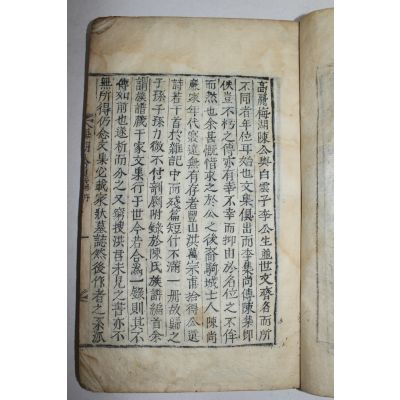 高麗梅湖陳公與白雲子李公生並世文齊名而所
不同者年位耳始也文集俱出而李集尚傳陳集即
佚豈不朽之傳亦有幸不幸而抑由於名位之不侔
而然也余甚慨惜求之於公之後裔駒城士人陳尚
廉家年代寖遠無有存者豐山洪萬宗甞拾得公選
詩若干首於雜記中而殘篇短什不滿一冊故歸之
子孫子孫力微不付剞劂附錄於陳氏族譜編首余
謂族譜廣千家文集行于世今若合爲一錄則其不
傳如前也遂析而分之又窮搜洪君未見之書亦不
無所得仍念文集必載家狀墓誌然後作者之系派